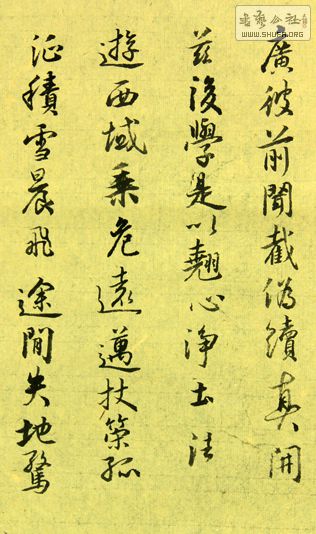 廣彼前聞截偽續真開
茲後學是以翹心淨土法
遊西域乘危遠邁杖策孤
征積雪晨飛途間失地驚
WWW.SHUFA.ORG